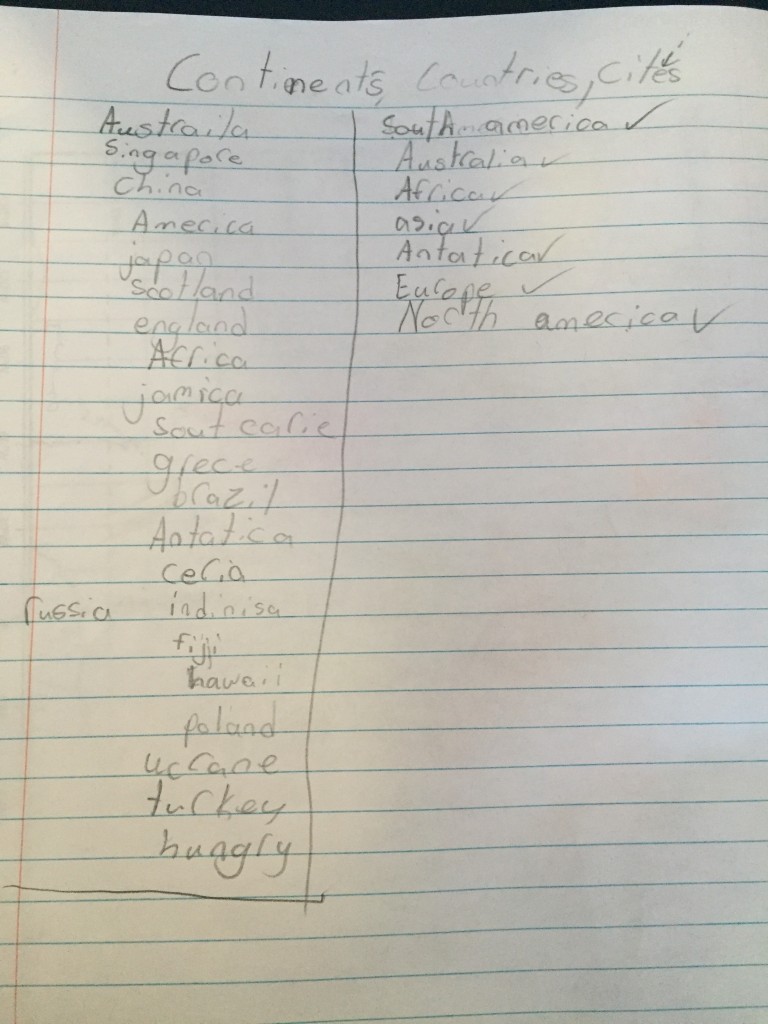 Continents, Countries, Cites
Austraila
Singapore
China
America
japan
Scotland
england
Africa
jamica
Sout carie
grece
brazil
Antatica
ceria
russia indinisa
fijji
hawaii
poland
ucrane
turkey
hungry
South america ✓
Australia ✓
Africa ✓
asia ✓
Antatica ✓
Europe ✓
North america ✓